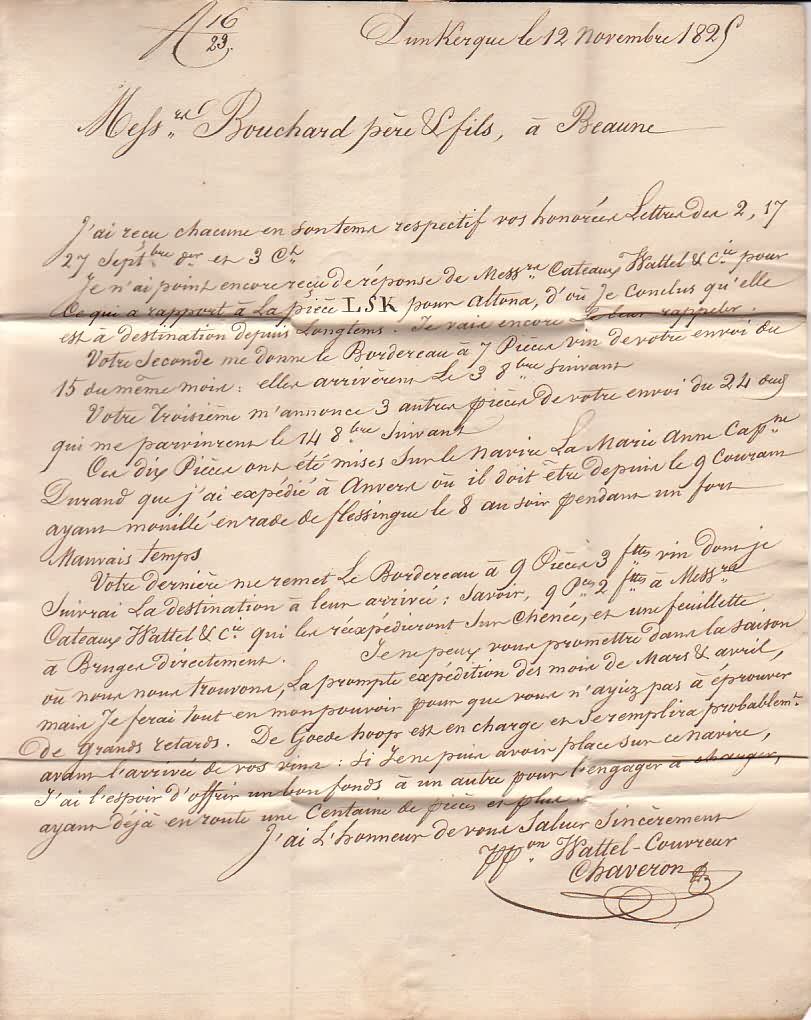 R 16
23.
Dunkerque le 12 Novembre 1825
Mess.rs Bouchard père & fils, à Beaune
J'ai reçu chacune en son tems respectif vos honorées Lettres des 2, 17
27 Sept.bre d.er et 3 C.t
Je n'ai point encore reçu de réponse de Mess.rs Cateaux Wattel & C.ie pour
Ce qui a rapport à La pièce LSK pour Altona, d'où Je Conclus qu'elle
est à destination depuis Longtems. Je vais encore le leur rappeler.
Votre Seconde me donne le Bordereau à 7 Pièces vin de votre envoi du
15 du même mois : elles arrivèrent Le 3 8.bre Suivant
Votre troisième m'annonce 3 autres pièces de votre envoi du 24 dud
qui me parvinrent le 14 8.bre Suivant
Ces dix Pièces ont été mises Sur le Navire La Marie Anne Cap.ne
Durand que j'ai expédié à Anvers où il doit être depuis le 9 Courant
ayant mouillé en rade de flessingue le 8 au soir pendant un fort
Mauvais temps
Votre dernière me remet Le Bordereau à 9 Pièces 3 f.ttes vin dont je
Suivrai La destination à leur arrivée : Savoir, 9 P.ces 2 f.ttes à Mess.rs
Cateaux Wattel & C.ie qui les réexpéduront Sur Chênée, et une feuillette
à Bruges directement. Je ne peux vous promettre dans la saison
où nous nous trouvons, La prompte expédition des mois de Mars & avril,
mais Je ferai tout en mon pouvoir pour que vous n'ayiez pas à éprouver
de grands retards. De Goede hoop est en charge et Se remplira probablem.t
avant l'arrivée de vos vins : Si Je ne puis avoir place Sur ce Navire,
J'ai l'espoir d'offrir un bon fonds à un autre pour l'engager à charger,
ayant déjà en route une Centaine de pièces et plus.
J'ai L'honneur de vous Saluer Sincèrement
pp.on Wattel-Couvreur
Chaveron